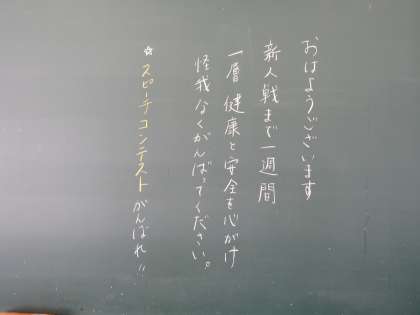 おはようございます
新人戦まで一週間
一層健康と安全を心がけ
怪我なくがんばってください。
☆スピーチコンテストがんばれ!!